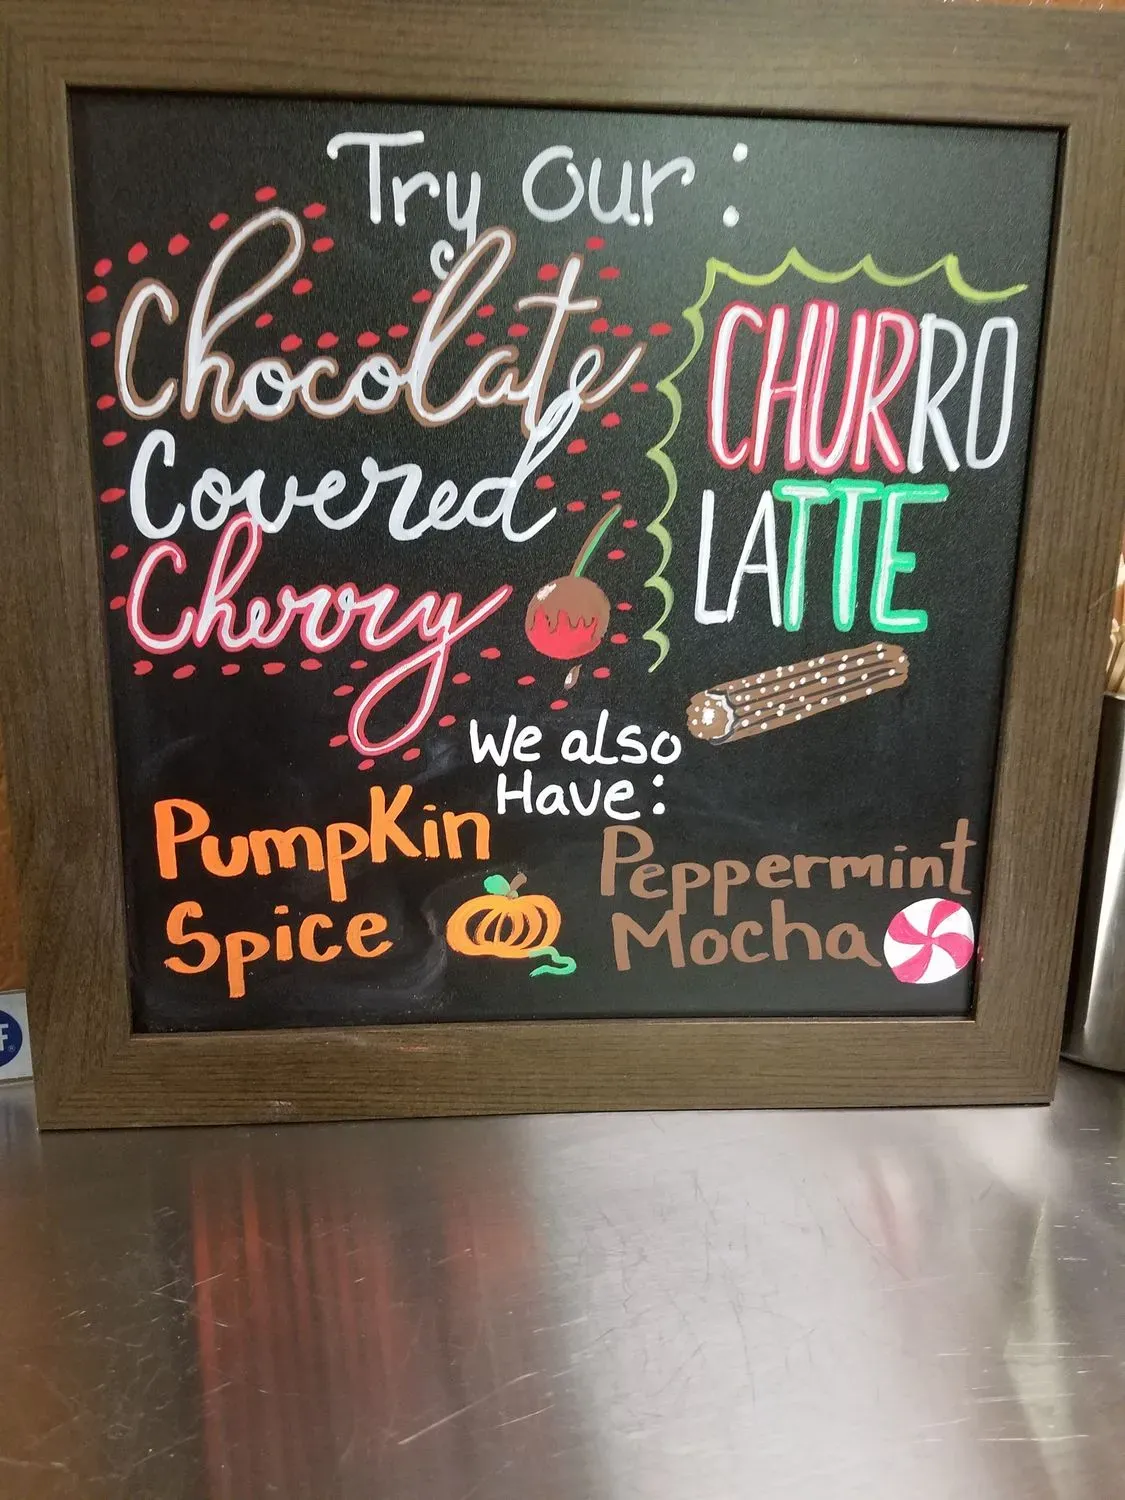 Try Our:
Chocolate
Covered
Cherry
CHURRO
LATTE
We also
Have:
Pumpkin
Spice
Peppermint
Mocha